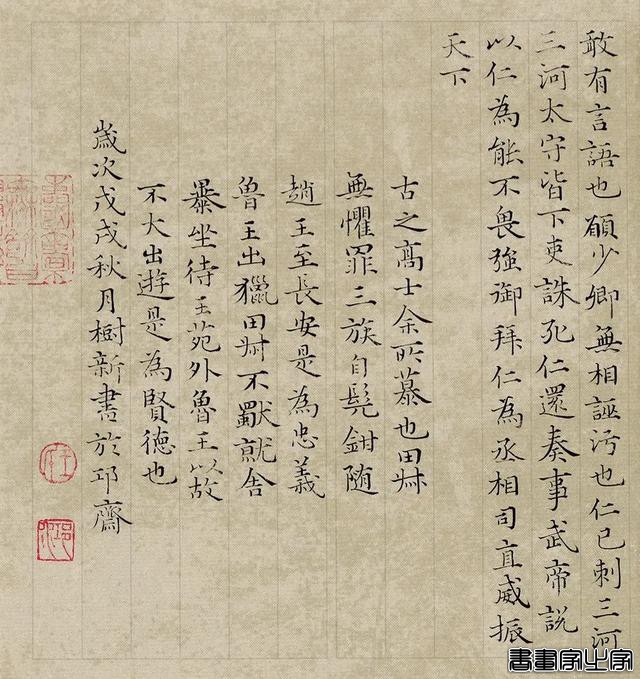 敢有言語也願少卿無相誣污也仁已刺三河
三河太守皆下吏誅死仁還奏事武帝説
以仁為能不畏強御拜仁為丞相司直威振
天下
古之高士余所慕也田叔
無懼罪三族自髡鉗随
趙王至長安是為忠義
魯王出獵田叔不獸就舍
暴坐待王苑外魯王以故
不大出遊是為賢德也
歲次戊戌秋月樹新書於邛齋
書畫家之家